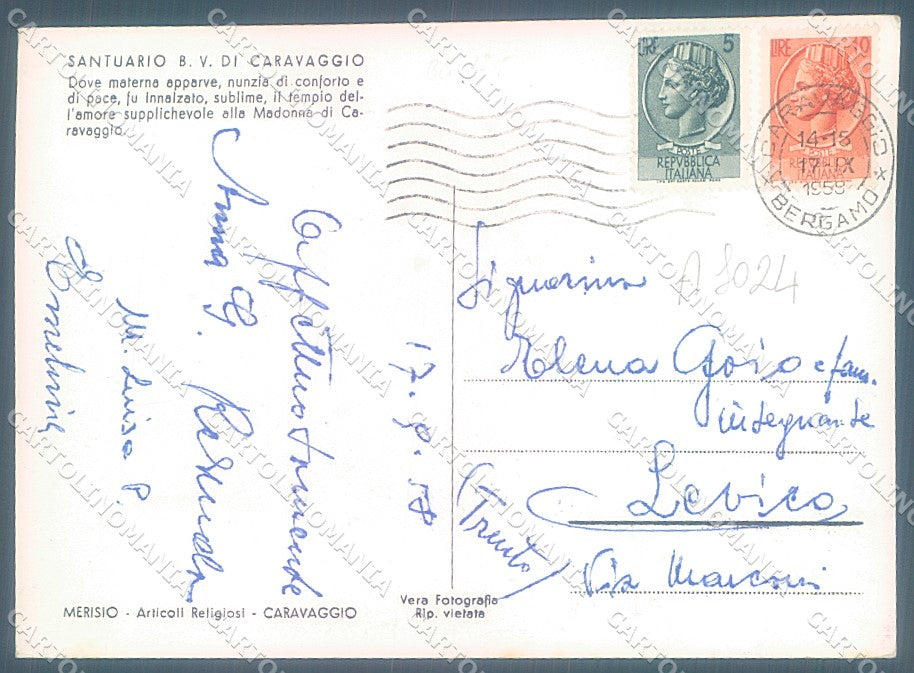 SANTUARIO B. V. DI CARAVAGGIO
Dove materna apparve, nunzia di conforto e
di pace, fu innalzato, sublime, il tempio del-
l'amore supplichevole alla Madonna di Ca-
ravaggio.
LIRE 5
POSTE
REPVBBLICA
ITALIANA
LIRE 30
REPVBBLICA
ITALIANA
CARAVAGGIO
14-15
17 IX
1958
BERGAMO
A 8024
17. 9. 58
Affettuosamente
Anna G.
M. Luisa P.
Signorina
Elena Goio e fam.
insegnante
Levico
(Trento)
Via Marconi
MERISIO - Articoli Religiosi - CARAVAGGIO
Vera Fotografia
Rip. vietata
CARTOLINOMANIA